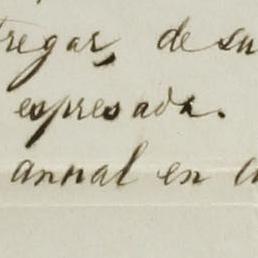 tregar, de su
espresada.
annal en